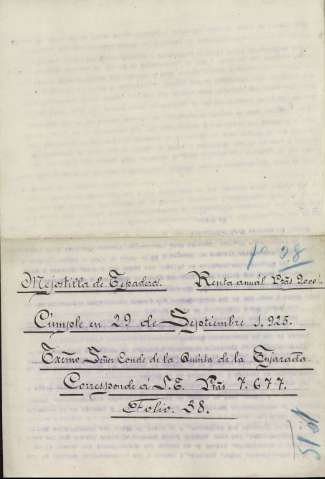 fº 38
Mejostilla de Tepadero. Renta anual Ptas 9000.
Cúmple en 29 de Septiembre 1.925.
Excmo Señor Conde de la Quinta de la Enjarada
Corresponde á S.E. Ptas 7.677.
Folio. 38.